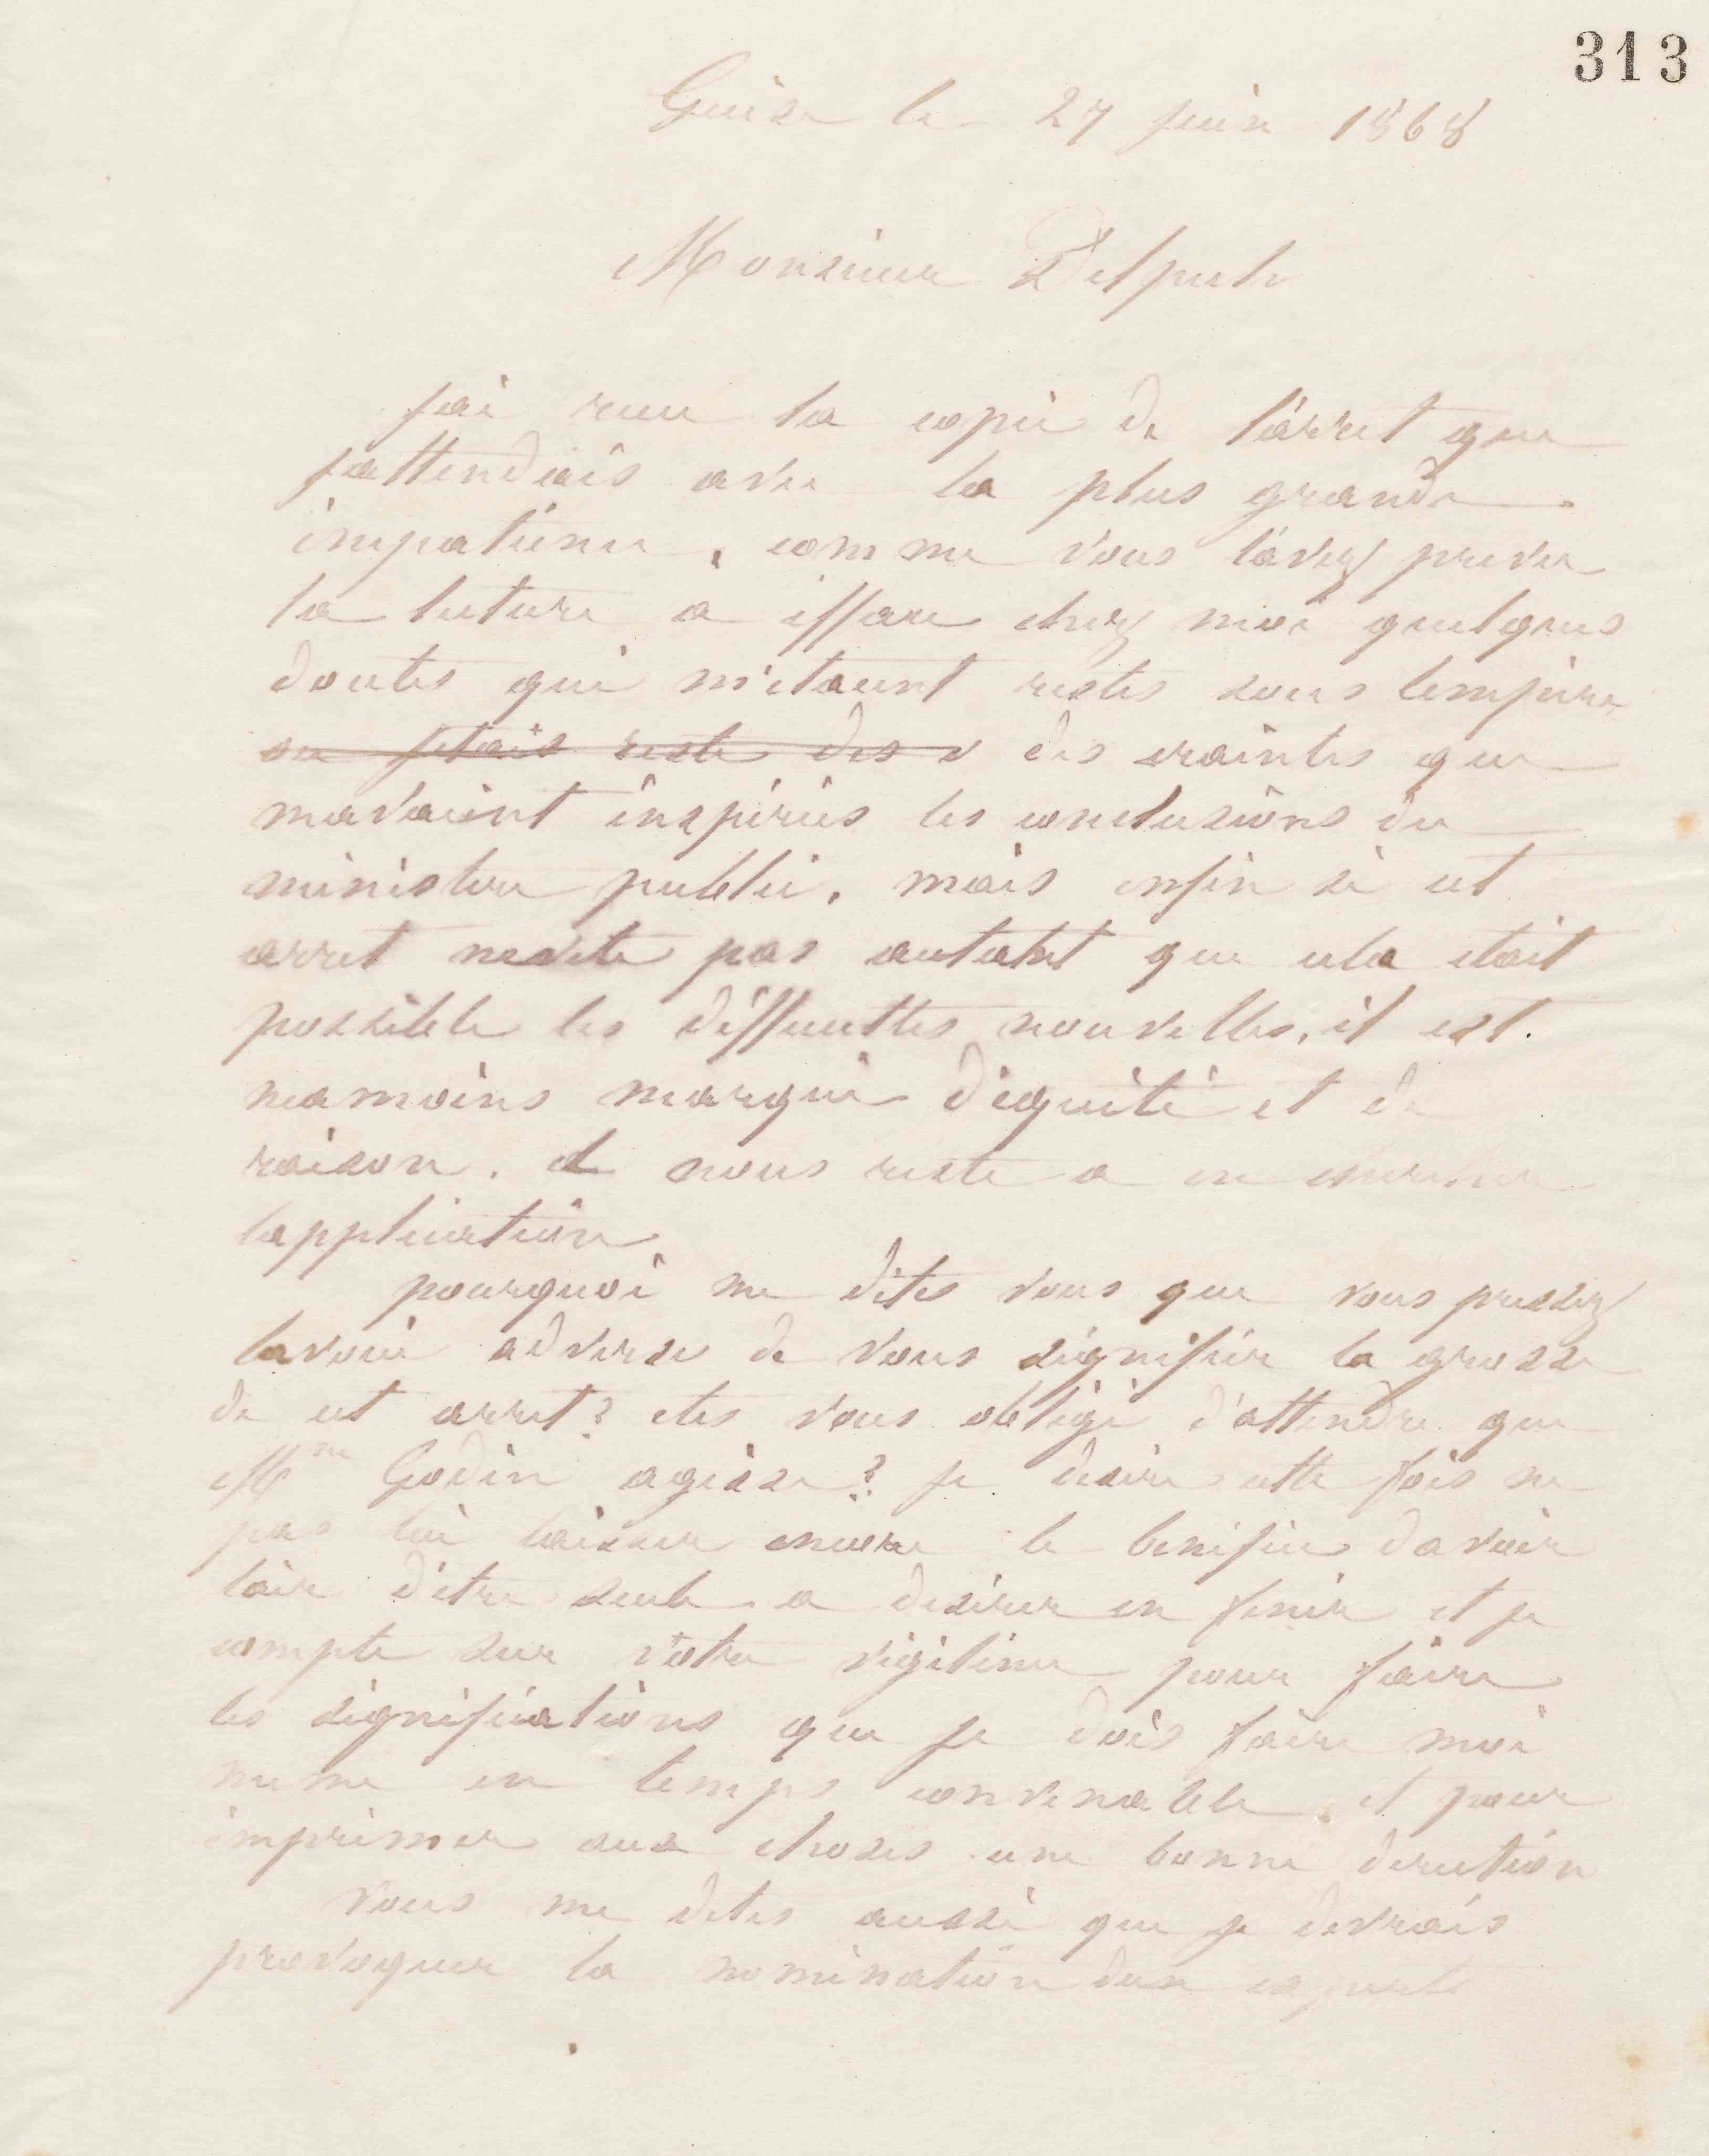 313
Guise le 27 juin 1868
Monsieur Delpech
jai recu la copie de l'arret que
j'attendais avec la plus grande
impatience, comme vous l'avez prevu
la lecture a effacé chez moi quelques
doutes qui m'etaient restes sous lempire
ou jetais reste des c des craintes que
mavaient inspirées les conclusions du
ministere public, mais enfin si cet
arret nevite pas autant que cela etait
possible les difficultes nouvelles, il est
neamoins marqué d'equité et de
raison. il nous reste a en chercher
lapplication
pourquoi me dites vous que vous pressez
lavoué adverse de vous signifier la grosse
de cet arret? etes vous obligé d'attendre que
Mme Godin agisse? je desire cette fois ne
pas lui laisser encore le benefice davoir
lair d'etre seule a desirer en finir et je
compte sur votre vigilence pour faire
les significations que je dois faire moi
meme en temps convenable et pour
imprimer aux choses une bonne direction
vous me dites aussi que je devrais
provoquer la nomination dun experte